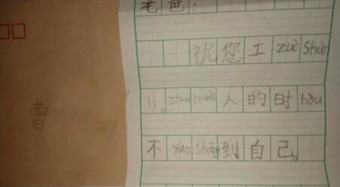 老爸：
祝您工 zuò Shùn
lì。zhuā 人的时 hòu
不 yào Shāng 到自己。
曹